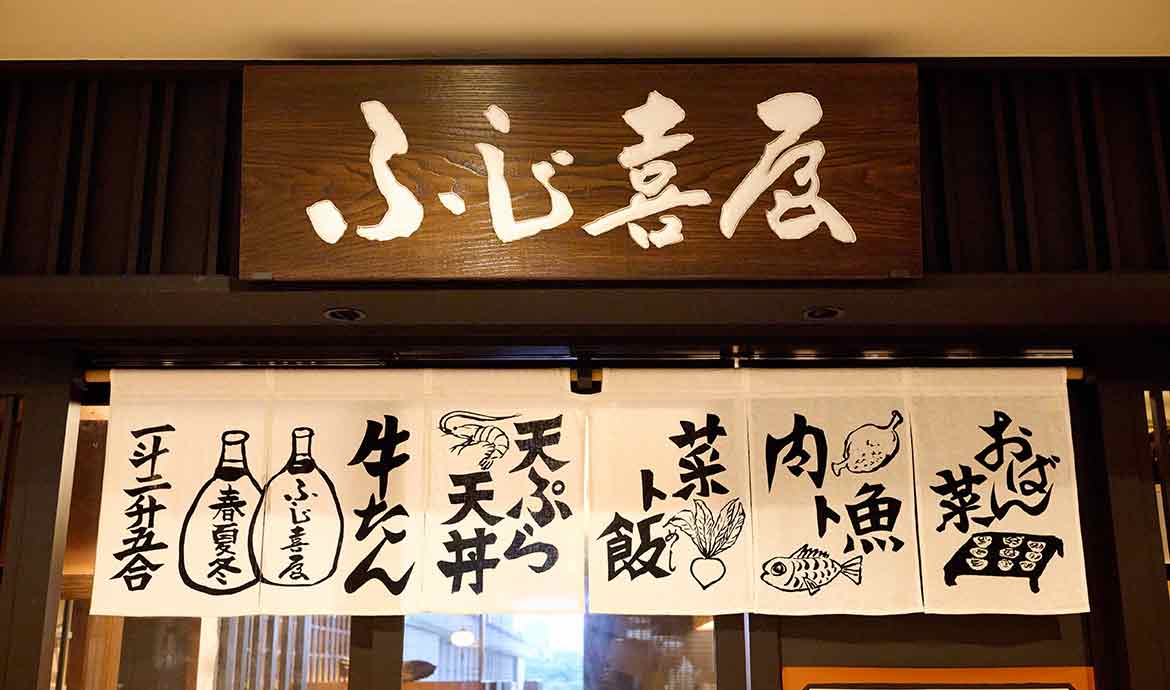 ふじ喜屋
おばん
菜
肉ト
魚
菜
ト飯
めし
天ぷら
天丼
牛たん
ふじ喜屋
春夏冬
一斗二升五合